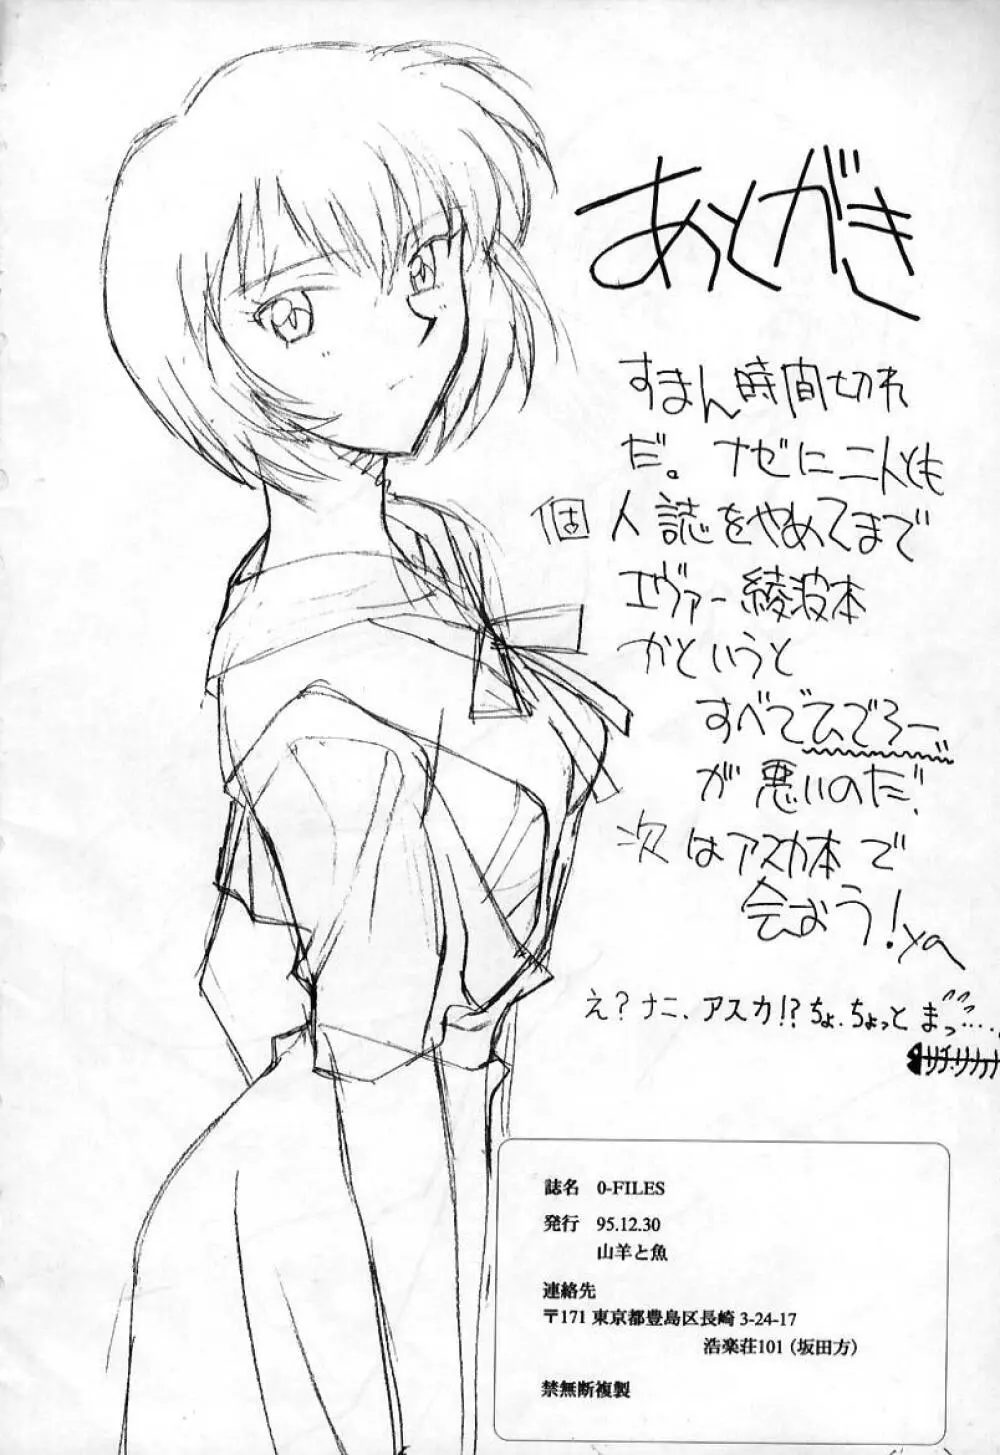 あとがき
すまん時間切れ
だ。ナゼに二人とも
個人誌をやめてまで
エヴァー綾波本
かというと
すべてひでろー
が悪いのだ。
次はアスカ本で
会おう!ya
え?ナニ、アスカ!?ちょ、ちょっとまっ……
誌名 0-FILES
発行 95.12.30
山羊と魚
連絡先
〒171 東京都豊島区長崎 3-24-17
浩楽荘101（坂田方）
禁無断複製